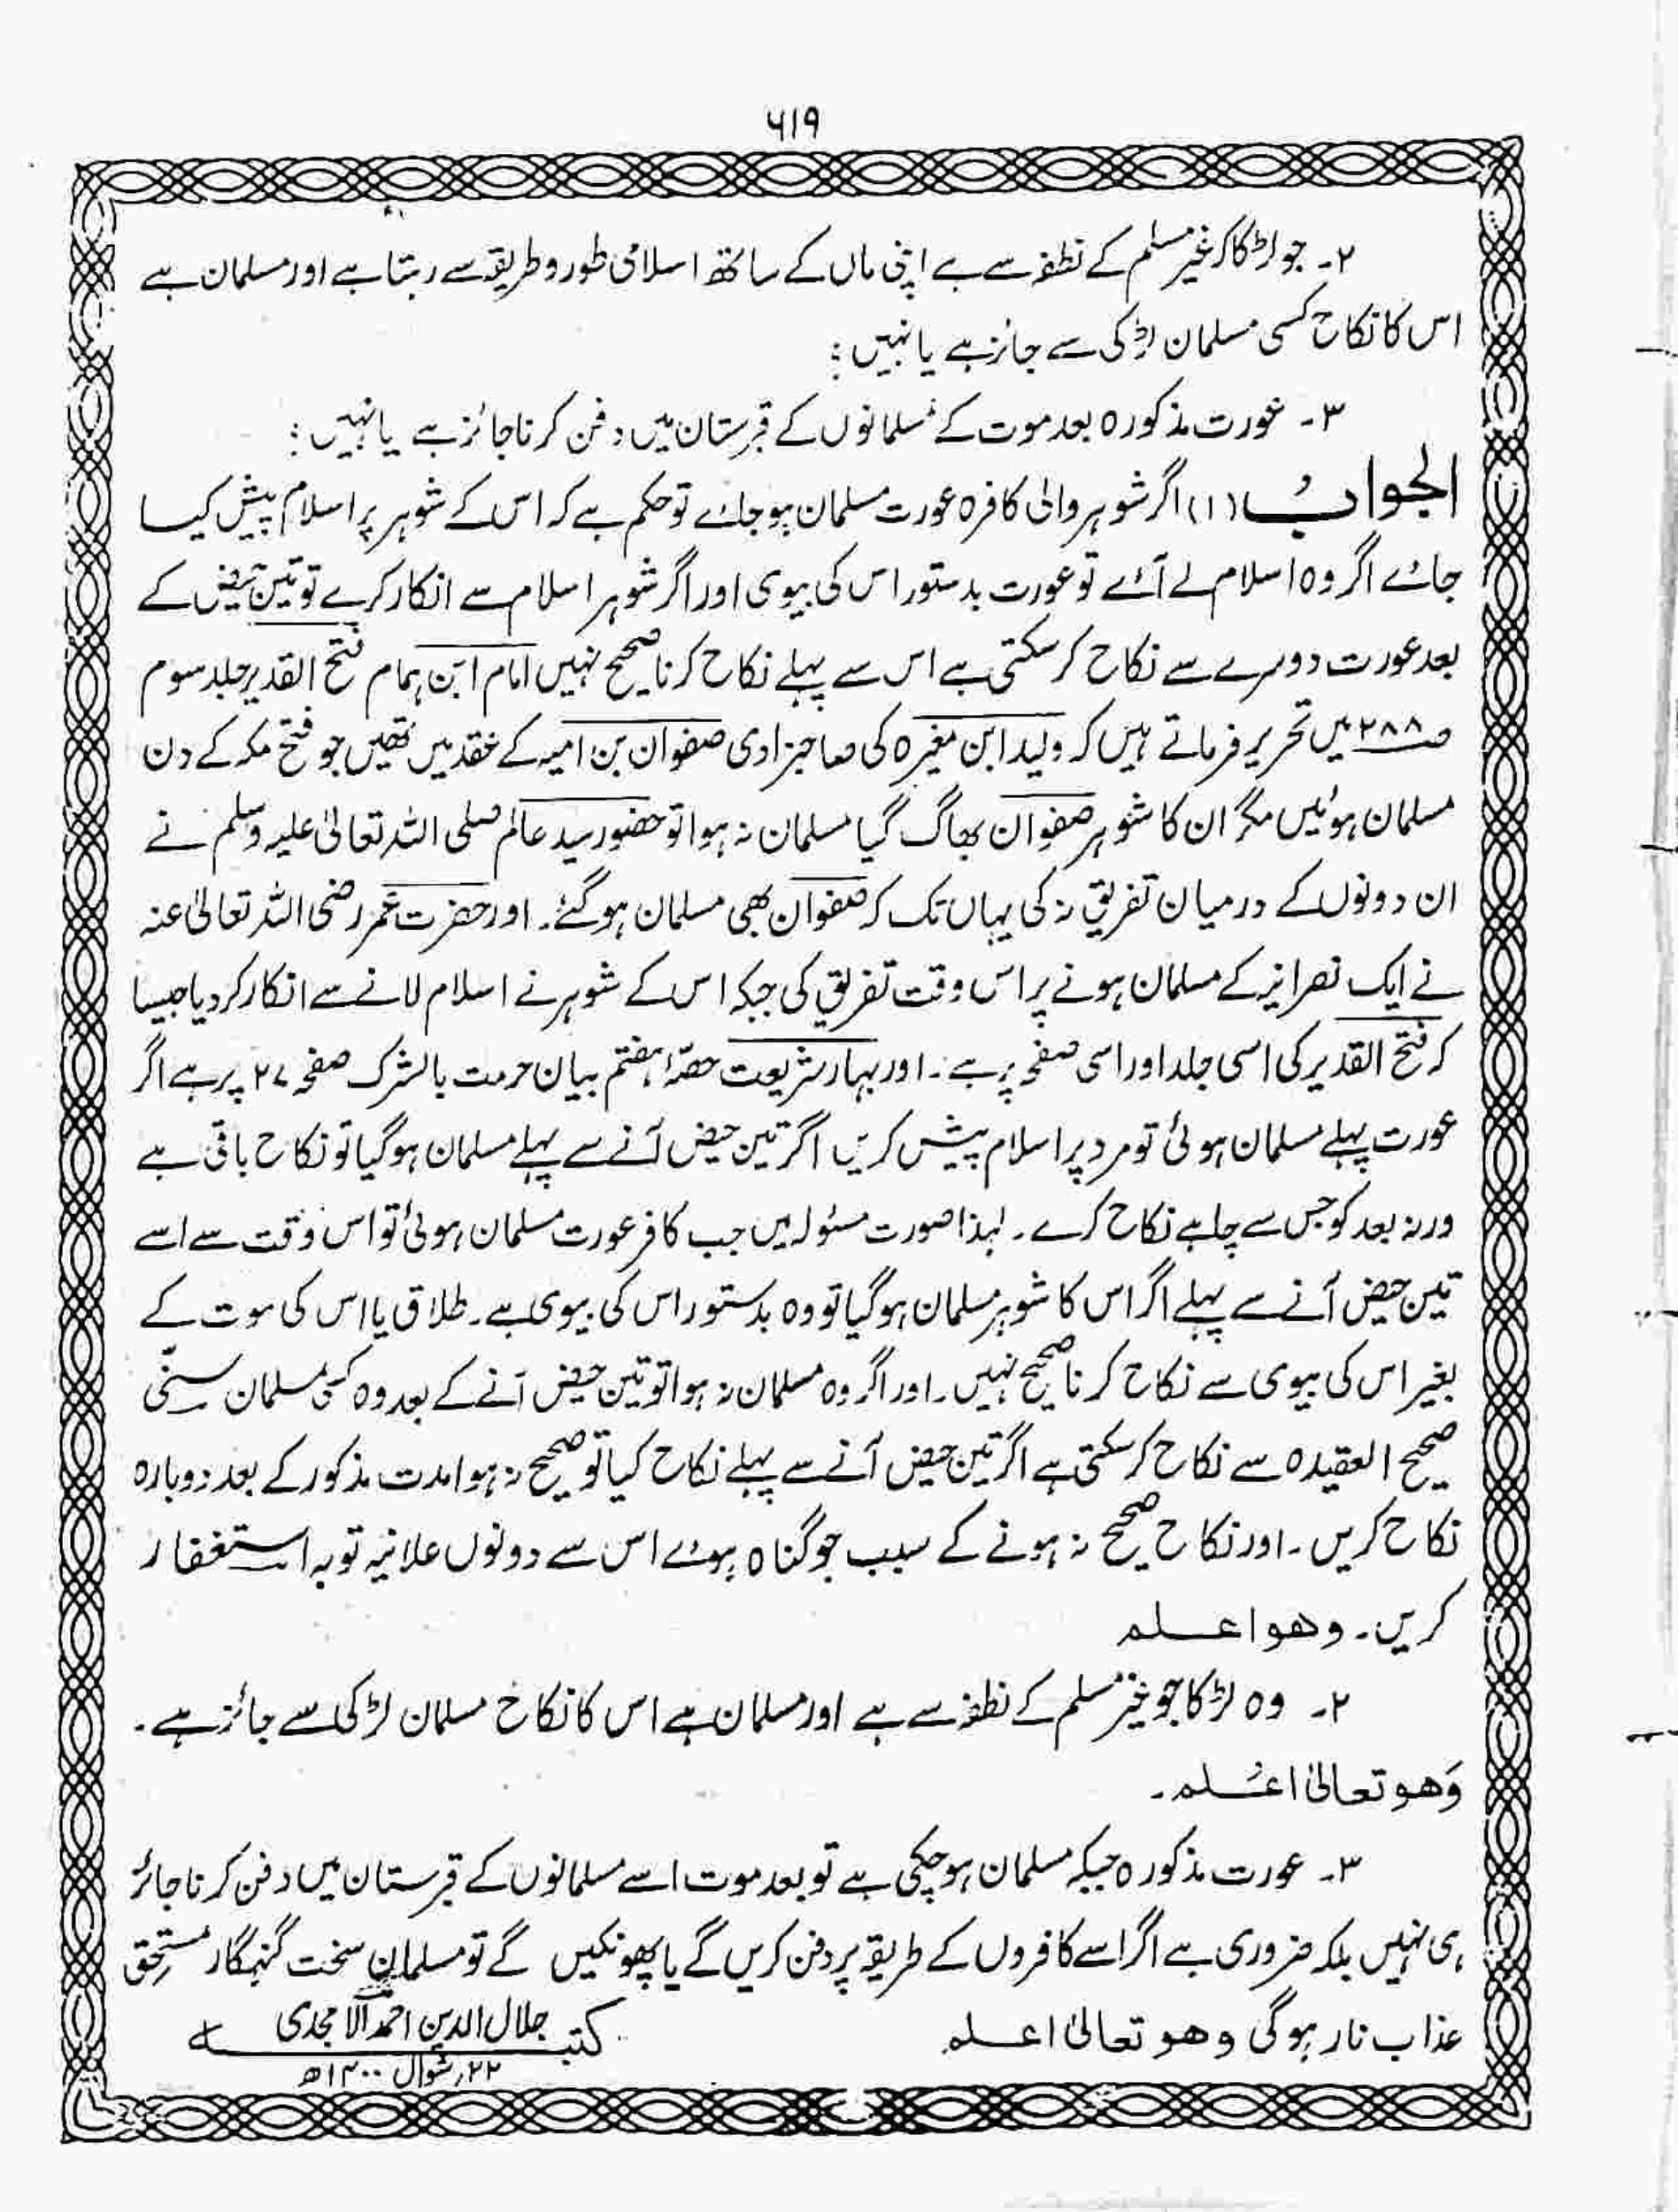 ۶۱۹
۲۔ جو لڑکا کہ غیر مسلم کے نطفہ سے ہے اپنی ماں کے ساتھ اسلامی طور و طریقہ سے رہتا ہے اور مسلمان ہے
اس کا نکاح کسی مسلمان لڑکی سے جائز ہے یا نہیں :
۳۔ عورت مذکورہ بعد موت کے مسلمانوں کے قبرستان میں دفن کرنا جائز ہے یا نہیں :
الجواب (۱) اگر شوہر والی کافرہ عورت مسلمان ہو جائے تو حکم ہے کہ اس کے شوہر پر اسلام پیش کیا
جائے اگر وہ اسلام لے آئے تو عورت بدستور اس کی بیوی اور اگر شوہر اسلام سے انکار کرے تو تین حیض کے
بعد عورت دوسرے سے نکاح کر سکتی ہے اس سے پہلے نکاح کرنا صحیح نہیں امام ابن ہمام فتح القدیر جلد سوم
صــ۲۸۸ میں تحریر فرماتے ہیں کہ ولید ابن مغیرہ کی صاحبزادی صفوان بن امیہ کے عقد میں تھیں جو فتح مکہ کے دن
مسلمان ہوئیں مگر ان کا شوہر صفوان بھاگ گیا مسلمان نہ ہوا تو حضور سید عالم صلی اللہ تعالیٰ علیہ وسلم نے
ان دونوں کے درمیان تفریق نہ کی یہاں تک کہ صفوان بھی مسلمان ہو گئے۔ اور حضرت عمر رضی اللہ تعالیٰ عنہ
نے ایک نصرانیہ کے مسلمان ہونے پر اس وقت تفریق کی جبکہ اس کے شوہر نے اسلام لانے سے انکار کر دیا جیسا
کہ فتح القدیر کی اسی جلد اور اسی صفحہ پر ہے۔ اور بہار شریعت حصہ ہفتم بیان حرمت بالشرک صفحہ ۲۷ پر ہے اگر
عورت پہلے مسلمان ہوئی تو مرد پر اسلام پیش کریں اگر تین حیض آنے سے پہلے مسلمان ہو گیا تو نکاح باقی ہے
ورنہ بعد کو جس سے چاہے نکاح کرے۔ لہذا صورت مسئولہ میں جب کافر عورت مسلمان ہوئی تو اس وقت سے اسے
تین حیض آنے سے پہلے اگر اس کا شوہر مسلمان ہو گیا تو وہ بدستور اس کی بیوی ہے۔ طلاق یا اس کی موت کے
بغیر اس کی بیوی سے نکاح کرنا صحیح نہیں۔ اور اگر وہ مسلمان نہ ہوا تو تین حیض آنے کے بعد وہ کسی مسلمان سنی
صحیح العقیدہ سے نکاح کر سکتی ہے اگر تین حیض آنے سے پہلے نکاح کیا تو صحیح نہ ہوا مدت مذکور کے بعد دوبارہ
نکاح کریں۔ اور نکاح صحیح نہ ہونے کے سبب جو گناہ ہوئے اس سے دونوں علانیہ توبہ استغفار
کریں۔ وھو اعلم
۲۔ وہ لڑکا جو غیر مسلم کے نطفہ سے ہے اور مسلمان ہے اس کا نکاح مسلمان لڑکی سے جائز ہے۔
وَھو تعالیٰ اعلم۔
۳۔ عورت مذکورہ جبکہ مسلمان ہو چکی ہے تو بعد موت اسے مسلمانوں کے قبرستان میں دفن کرنا جائز
ہی نہیں بلکہ ضروری ہے اگر اسے کافروں کے طریقہ پر دفن کریں گے یا پھونکیں گے تو مسلمان سخت گنہگار مستحق
عذاب نار ہوگی وھو تعالیٰ اعلم
کتبہ جلال الدین احمد الامجدی
۲۲؍ شوال ۱۴۰۰ھ